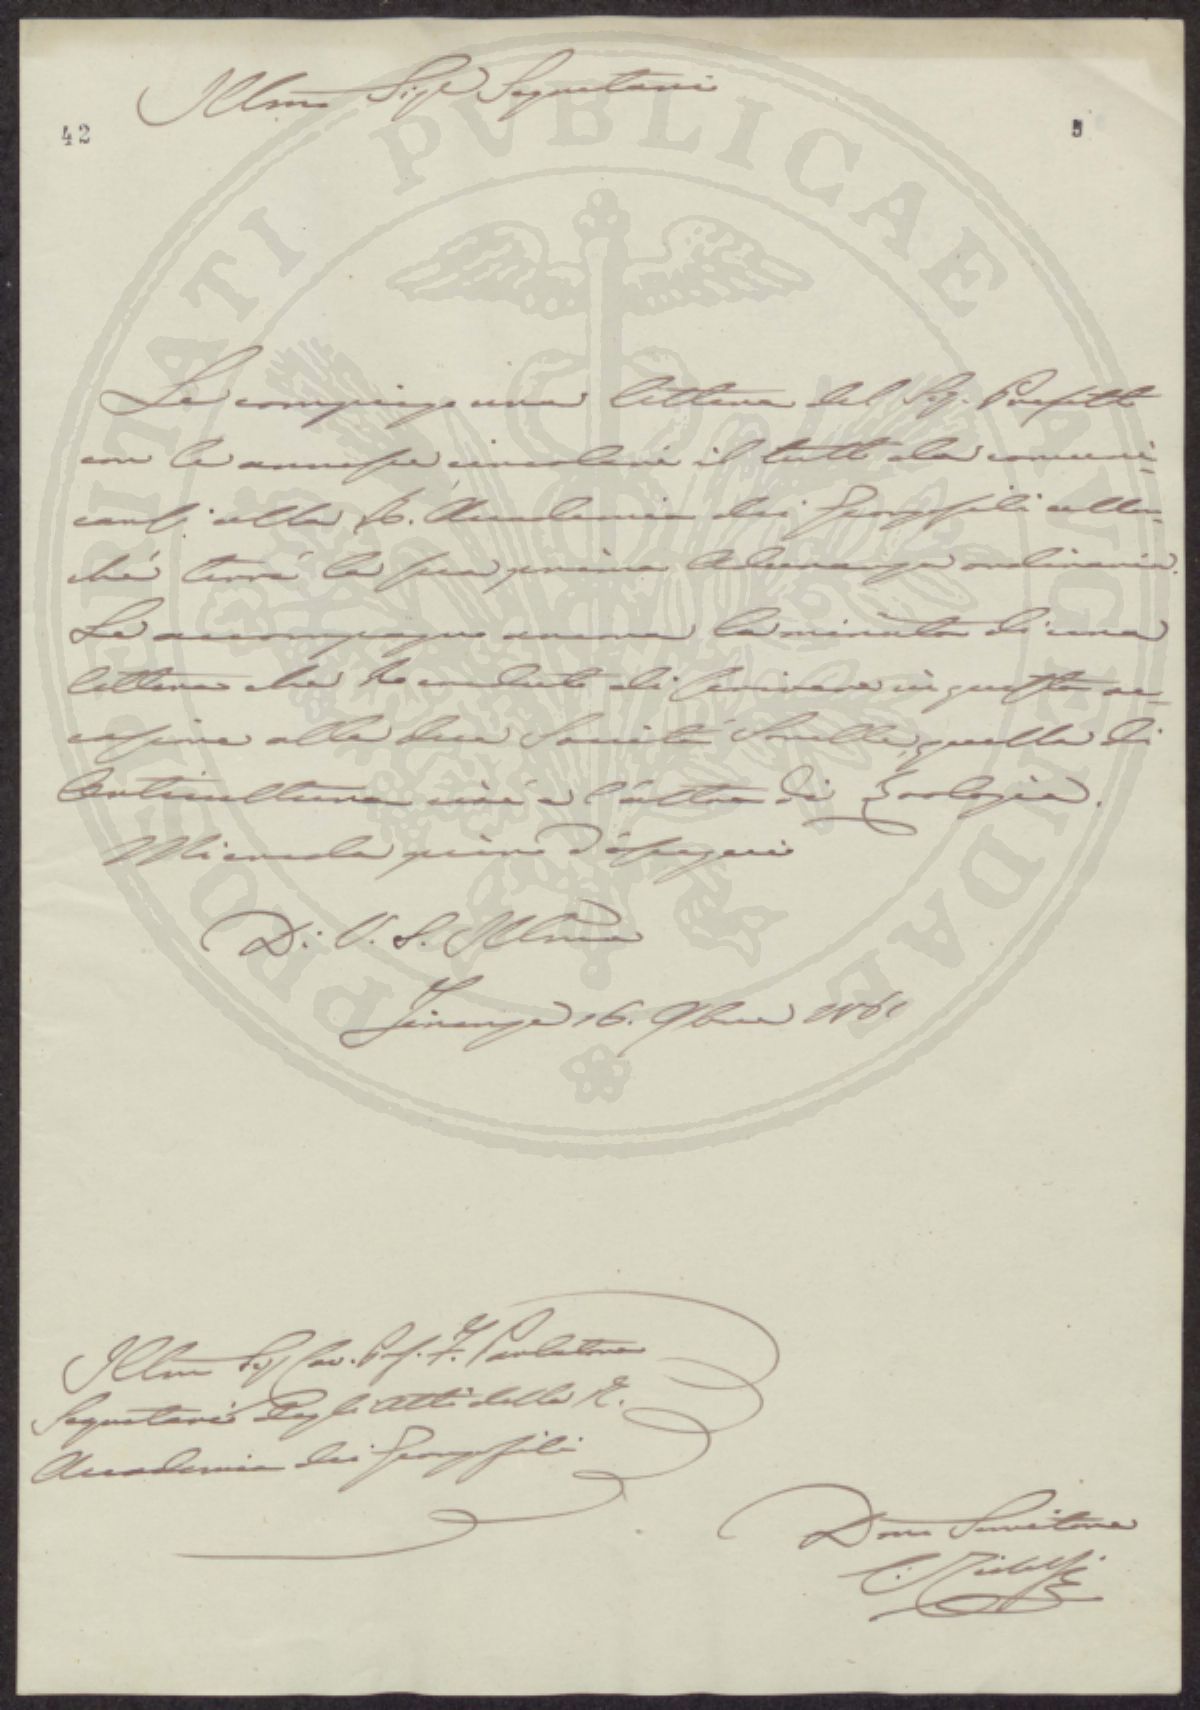 Illmo Sigr Segretario
42
5
Le compiego una lettera del Sig. Perfetti
con le annesse circolari il tutto da comuni-
carsi alla R. Accademia dei Georgofili allor-
ché terrà la sua prima Adunanza ordinaria.
Le accompagno ancora la minuta di una
lettera che ho creduto di scrivere in questa oc-
casione alla due Società Sorelle, quella di
Orticultura cioè e l'altra di Zoologia.
Mi creda pieno d'ossequio
Di V. S. Illma
Firenze 16. 9bre 1861
Illmo Sig Cav. Prof. F. Parlatore
Segretario degli Atti della R.
Accademia dei Georgofili
Devo Servitore
C. Ridolfi
PROSPERITATI PVBLICAE AVGENDAE